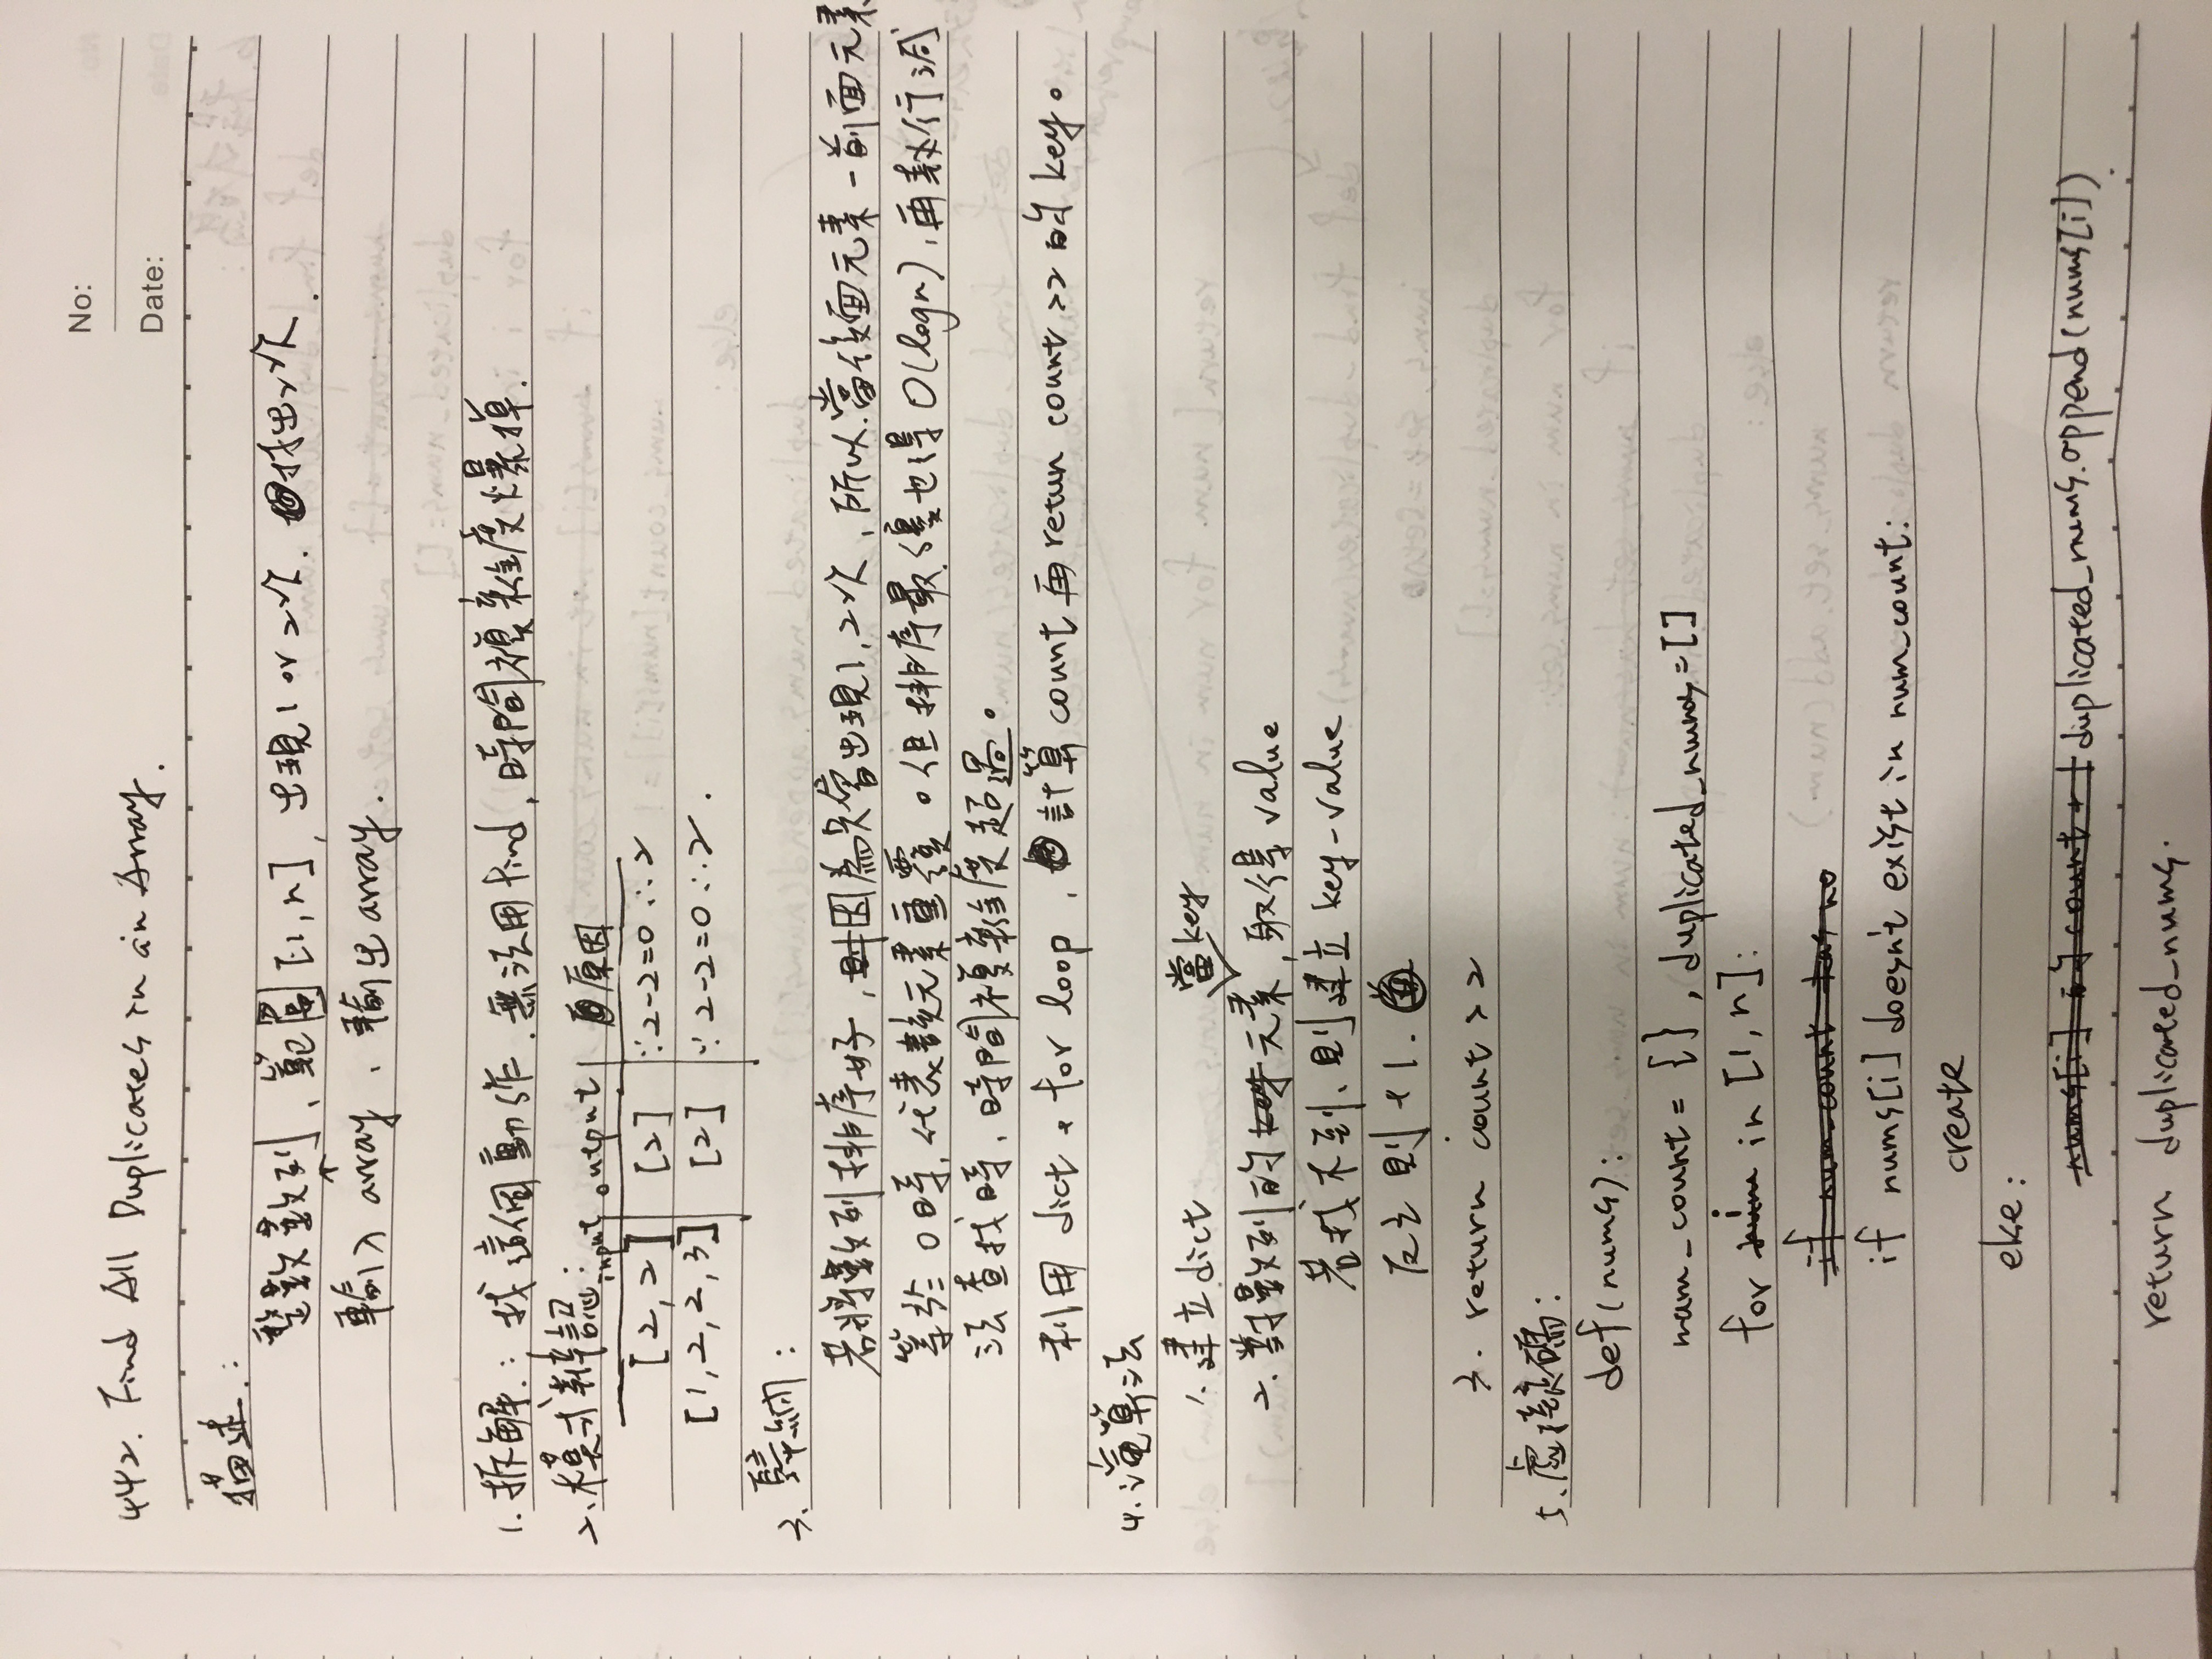 No:
442. Find All Duplicates in an Array.
Date:
描述.:
整數數列、範圍[1,n], 出現1 or 2次. 找出2次.
輸入 array、輸出array.
1. 拆解.: 找這個動作.無法用find, 時間複雜度爆掉.
2. 模式辨認:
input output 原因
[2,2] [2] ∵2-2=0 ∴2
[1,2,2,3] [2] ∵2-2=0 ∴2.
3. 歸納:
若將數列排序好,因為只會出現1,2次,所以當後面元素-前面元素
等於0時,代表該元素重覆。但排序最優也得O(logn),再執行減
法查找時,時間複雜度超過。
利用dict + for loop,計算count再retun count>2的key。
4. 演算法
1. 建立dict
2. 對數列的元素當key,取得value
若找不到、則建立key-value
反之則+1.
3. return count>2
5. 虛擬碼:
def(nums):
num_count = {}, duplicated_nums=[]
for i in [1,n]:
if num_count has no
if nums[i] doesn't exist in num_count:
create
else:
nums[i] 的 count + 1 duplicated_nums.append(nums[i])
return duplicated_nums.